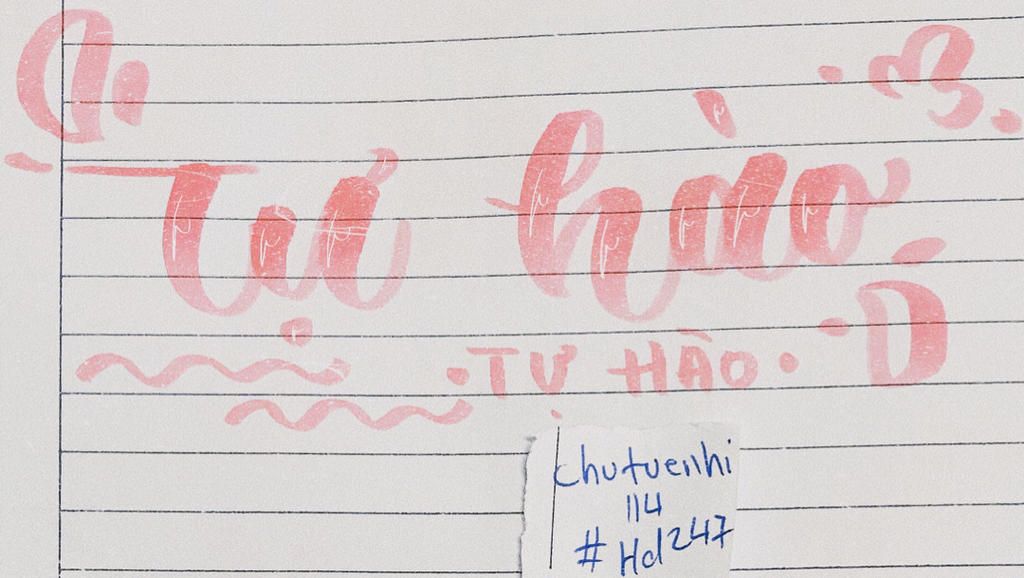 Tự hào
TỰ HÀO
chutuenhi
114
#Hd247